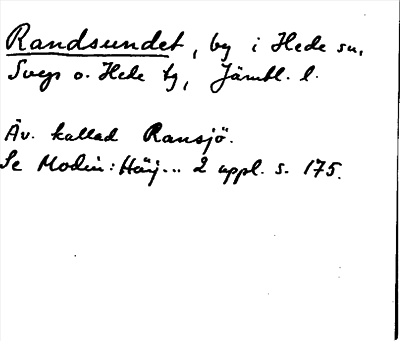 Randsundet, by i Hede sn,
Svegs o. Hede tg, Jämtl. l.
Äv. kallad Ransjö.
Se Modin: Härj... 2 uppl. s. 175.